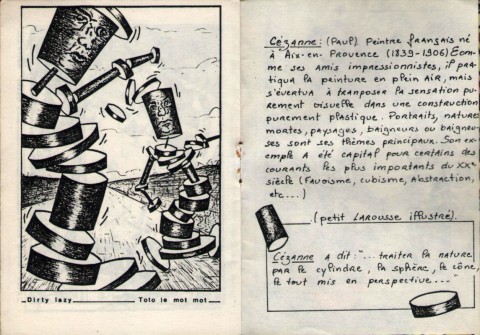 Dirty lazy Toto le mot mot
Cézanne: (Paul). Peintre français né
à Aix-en-Provence (1839-1906) Com-
me ses amis impressionnistes, il pra-
tiqua la peinture en plein air, mais
s'évertua à tranposer la sensation pu-
rement visuelle dans une construction
purement plastique. Portraits, natures
mortes, paysages, baigneurs ou baigneu-
ses sont ses thèmes principaux. Son ex-
emple a été capital pour certains des
courants les plus importants du XXe
siècle (Fauvisme, cubisme, Abstraction,
etc...)
(petit LAROUSSE illustré).
Cézanne a dit: "... traiter la nature
par le cylindre, la sphère, le cône,
le tout mis en perspective..."